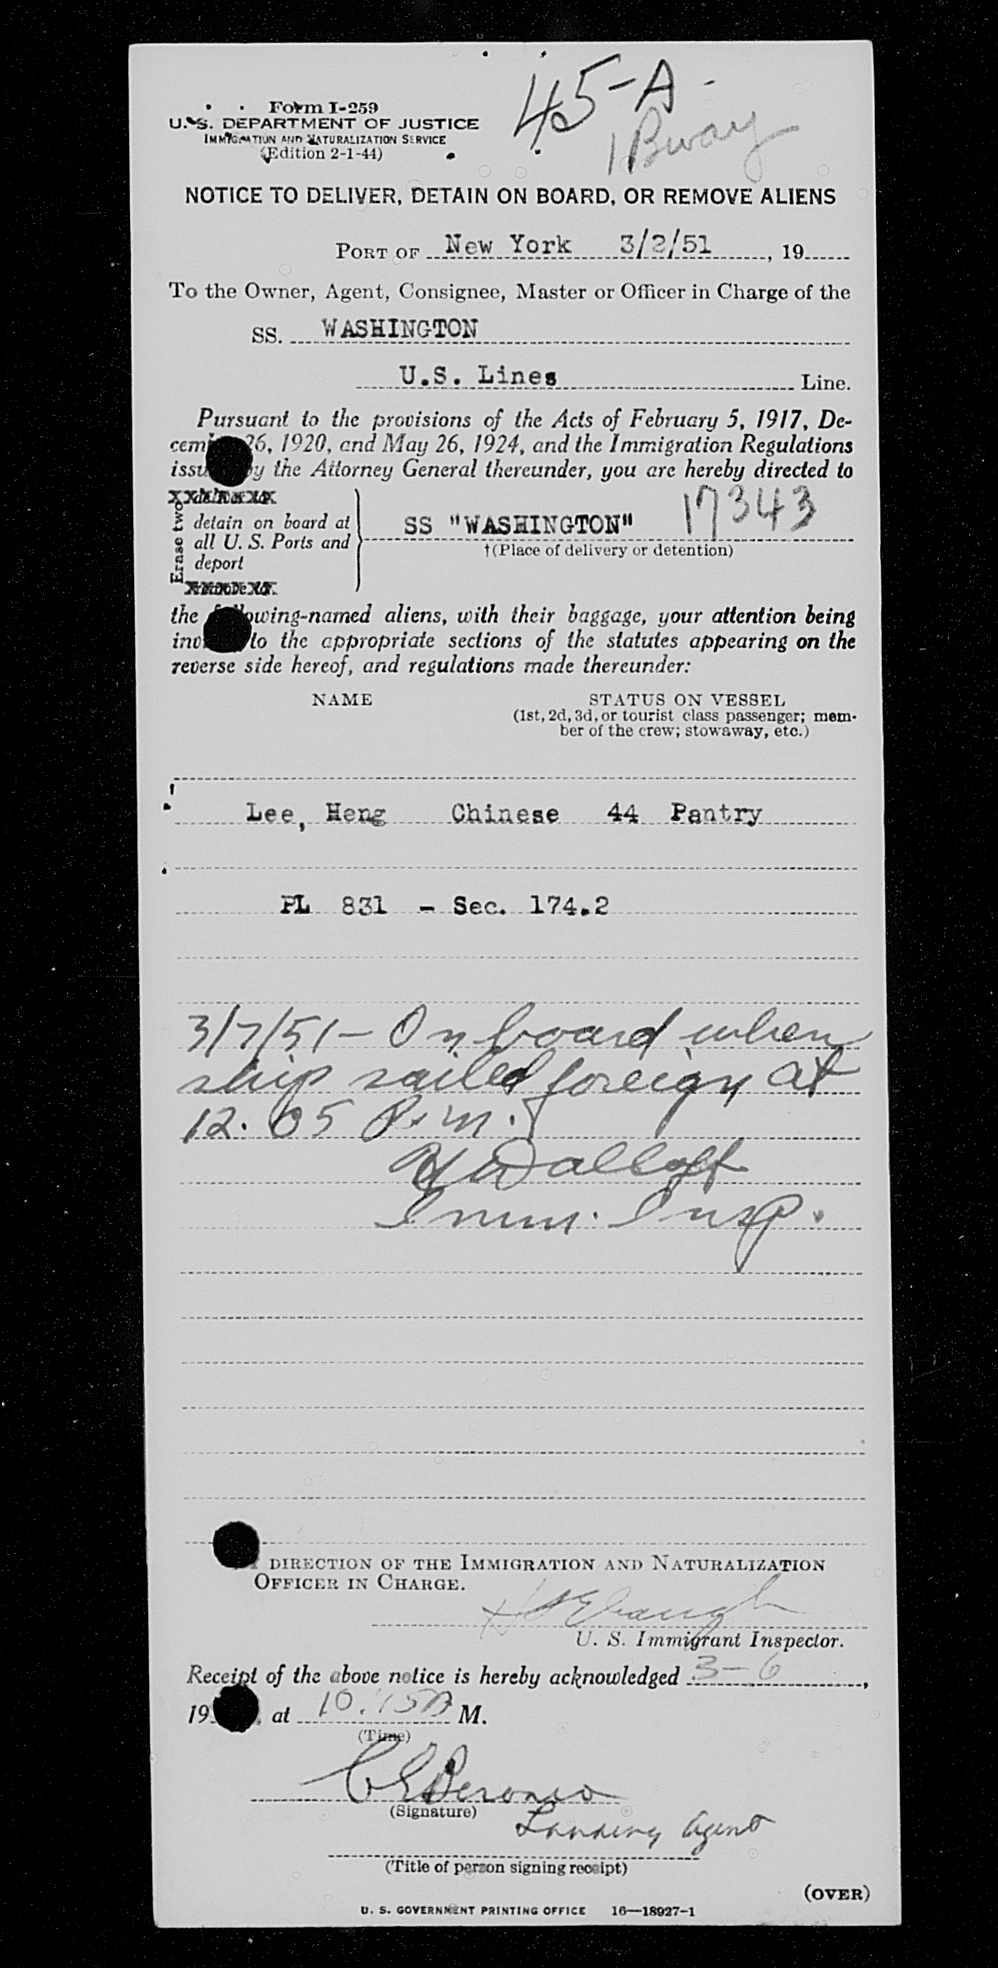 45-A-
1 Bway
Form I-259
U. S. DEPARTMENT OF JUSTICE
IMMIGRATION AND NATURALIZATION SERVICE
(Edition 2-1-44)
NOTICE TO DELIVER, DETAIN ON BOARD, OR REMOVE ALIENS
PORT OF New York 3/2/51, 19
To the Owner, Agent, Consignee, Master or Officer in Charge of the
SS. WASHINGTON
U.S. Lines Line.
Pursuant to the provisions of the Acts of February 5, 1917, De-
cem 26, 1920, and May 26, 1924, and the Immigration Regulations
issu y the Attorney General thereunder, you are hereby directed to
Erase two
detain on board at
all U. S. Ports and
deport
SS "WASHINGTON" 17343
†(Place of delivery or detention)
the f owing-named aliens, with their baggage, your attention being
inv to the appropriate sections of the statutes appearing on the
reverse side hereof, and regulations made thereunder:
NAME STATUS ON VESSEL
(1st, 2d, 3d, or tourist class passenger; mem-
ber of the crew; stowaway, etc.)
Lee, Heng Chinese 44 Pantry
PL 831 - Sec. 174.2
3/7/51 - On board when
ship sailed foreign at
12.05 P.m.
Imm. Insp.
DIRECTION OF THE IMMIGRATION AND NATURALIZATION
OFFICER IN CHARGE.
U. S. Immigrant Inspector.
Receipt of the above notice is hereby acknowledged 3-6,
19 at 10.15A M.
(Time)
(Signature)
Landing Agent
(Title of person signing receipt)
(OVER)
U. S. GOVERNMENT PRINTING OFFICE 16—18927-1